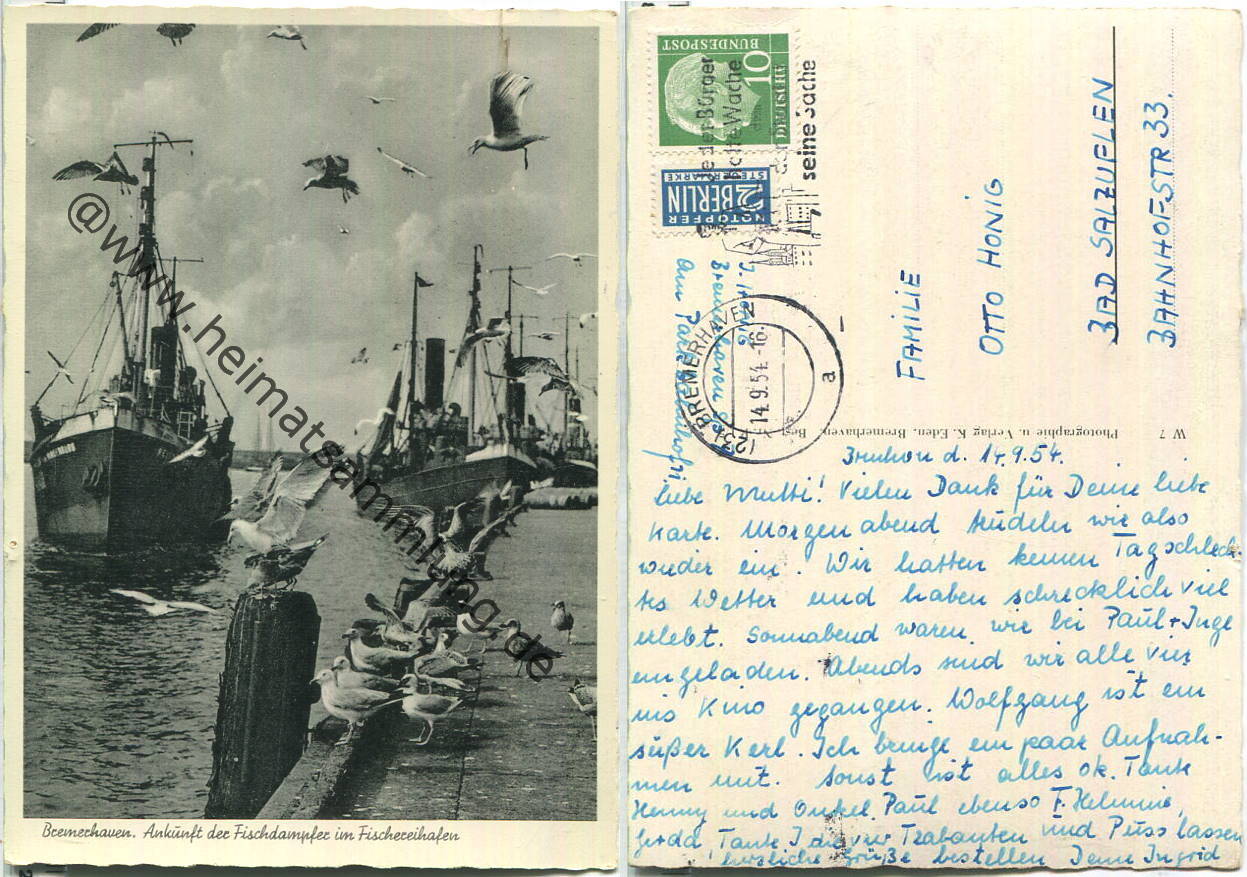 @www.heimatsammlung.de
Bremerhaven. Ankunft der Fischdampfer im Fischereihafen
DEUTSCHE
BUNDESPOST
10
NOTOPFER
2 BERLIN
STEUERMARKE
der Bürger
seine Sache
(23) BREMERHAVEN
14.9.54.-16.
a
Bremerhaven
Am
FAMILIE
OTTO HONIG
BAD SALZUFLEN
BAHNHOFSTR 33.
W 7 Photographie u. Verlag K. Eden, Bremerhaven, Best
d. 14.9.54.
Liebe Mutti! Vielen Dank für Deine liebe
Karte. Morgen abend trudeln wir also
wieder ein. Wir hatten keinen Tag schlech-
tes Wetter und haben schrecklich viel
erlebt. Sonnabend waren wir bei Paul + Inge
eingeladen. Abends sind wir alle vier
ins Kino gegangen. Wolfgang ist ein
süßer Kerl. Ich bringe ein paar Aufnah-
men mit. Sonst ist alles ok. Tante
Henny und Onkel Paul ebenso
Tante vier Trabanten und Puss lassen
herzliche Grüße bestellen Deine Ingrid